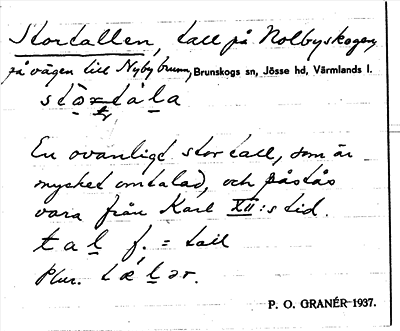 Stortallen, tall på Nolbyskogen,
på vägen till Nyby brunn, Brunskogs sn, Jösse hd, Värmlands l.
En ovanligt stor tall, som är
mycket omtalad, och påstås
vara från Karl XII:s tid.
tal f. = tall
Plur. tælər.
P. O. GRANÉR 1937.